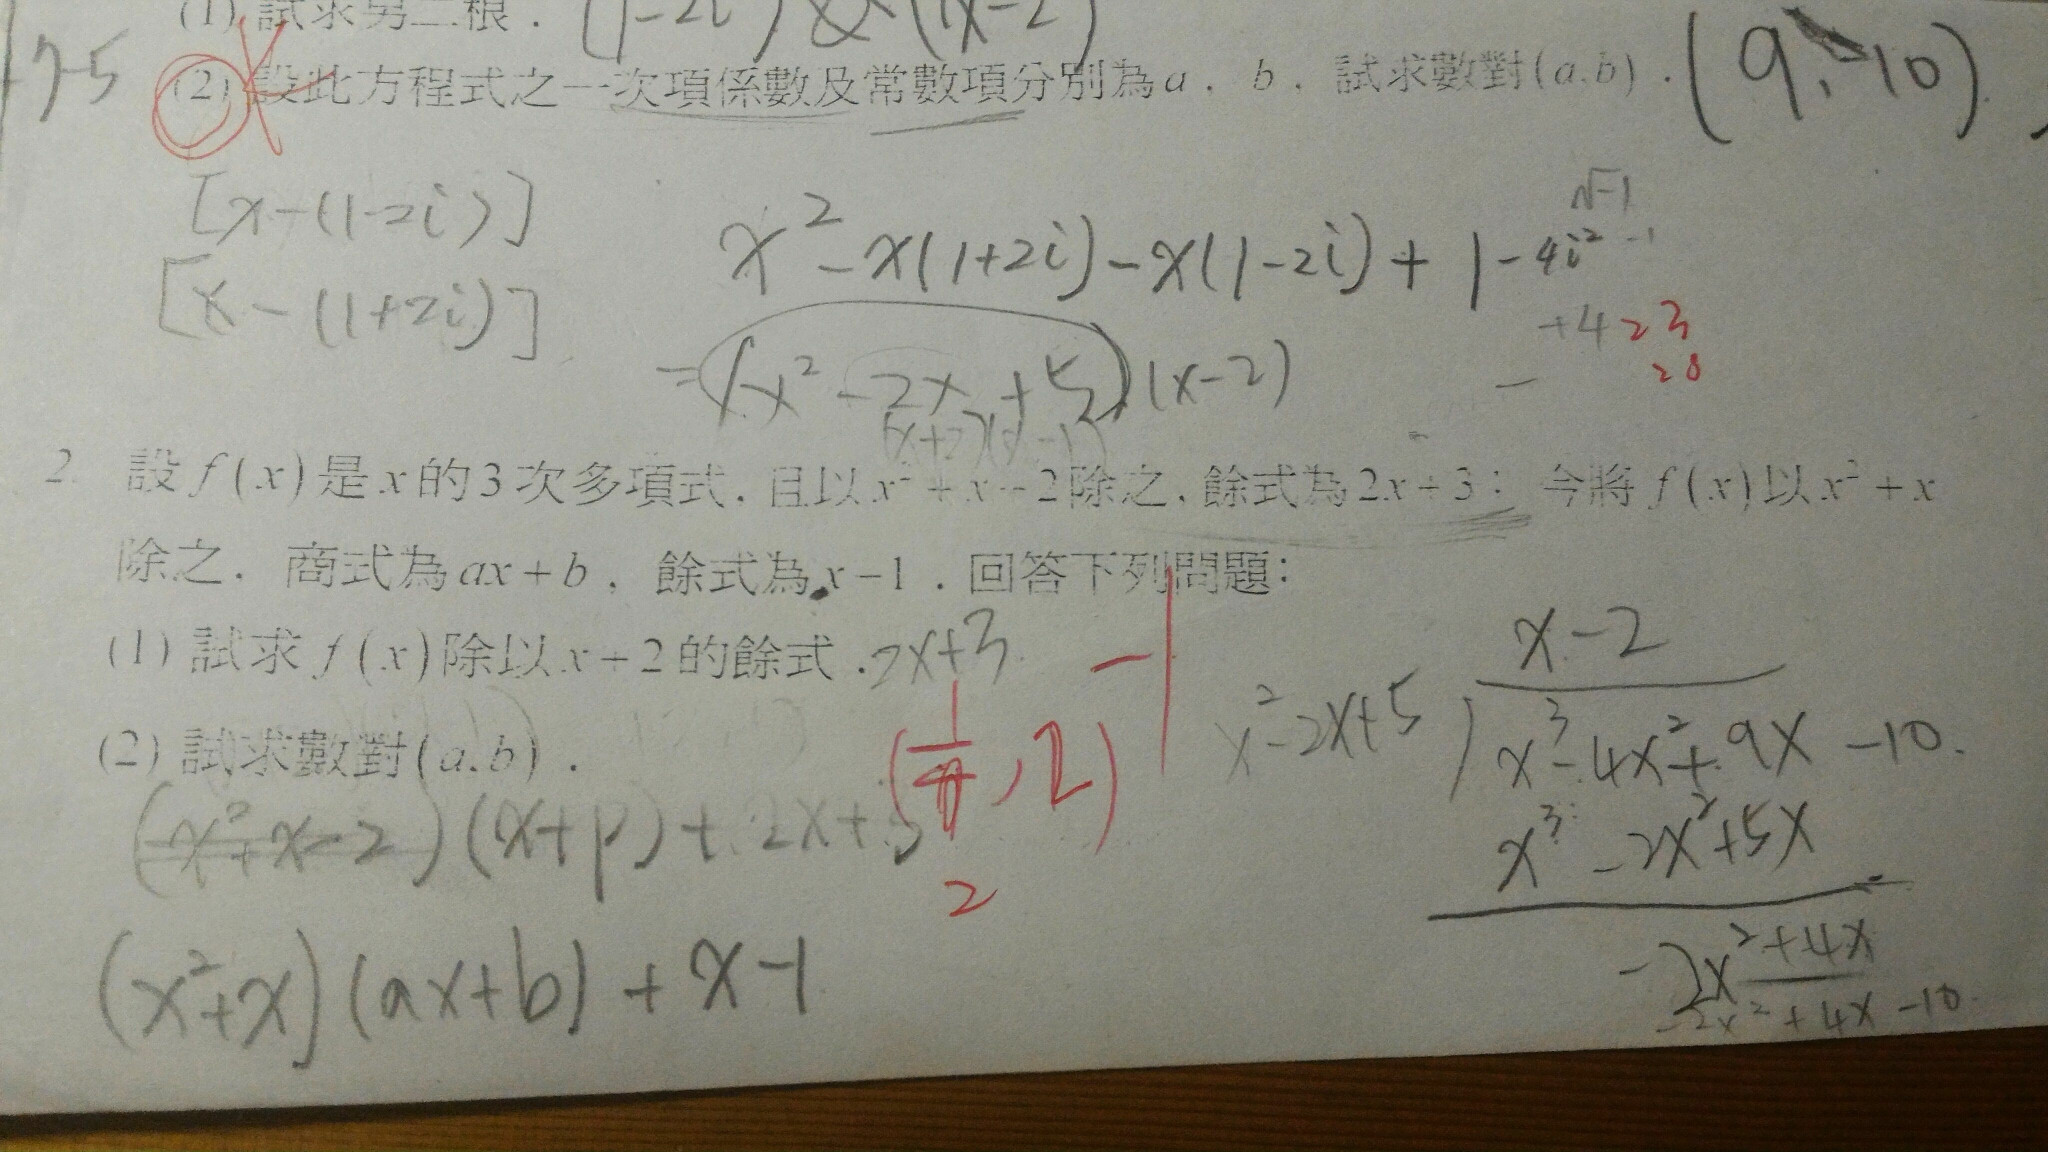 (1) 試求另二根. (1-2i) & (x-2)
+7-5
(2) 設此方程式之一次項係數及常數項分別為a, b, 試求數對(a,b). (9, -10)
[x-(1-2i)]
[x-(1+2i)]
x²-x(1+2i)-x(1-2i)+1-4i² -1
√-1
+4
23
28
=(x²-2x+5)(x-2)
(x+2)(x-1)
2. 設f(x)是x的3次多項式, 且以x²+x-2除之, 餘式為2x+3; 今將f(x)以x²+x
除之, 商式為ax+b, 餘式為x-1. 回答下列問題:
(1) 試求f(x)除以x+2的餘式. 2x+3 -1
(2) 試求數對(a,b).
(x²+x-2)(x+p)+2x+3
(x²+x)(ax+b)+x-1
x-2
x²-2x+5 x³-4x²+9x-10
x³-2x²+5x
-2x²+4x
-2x²+4x-10